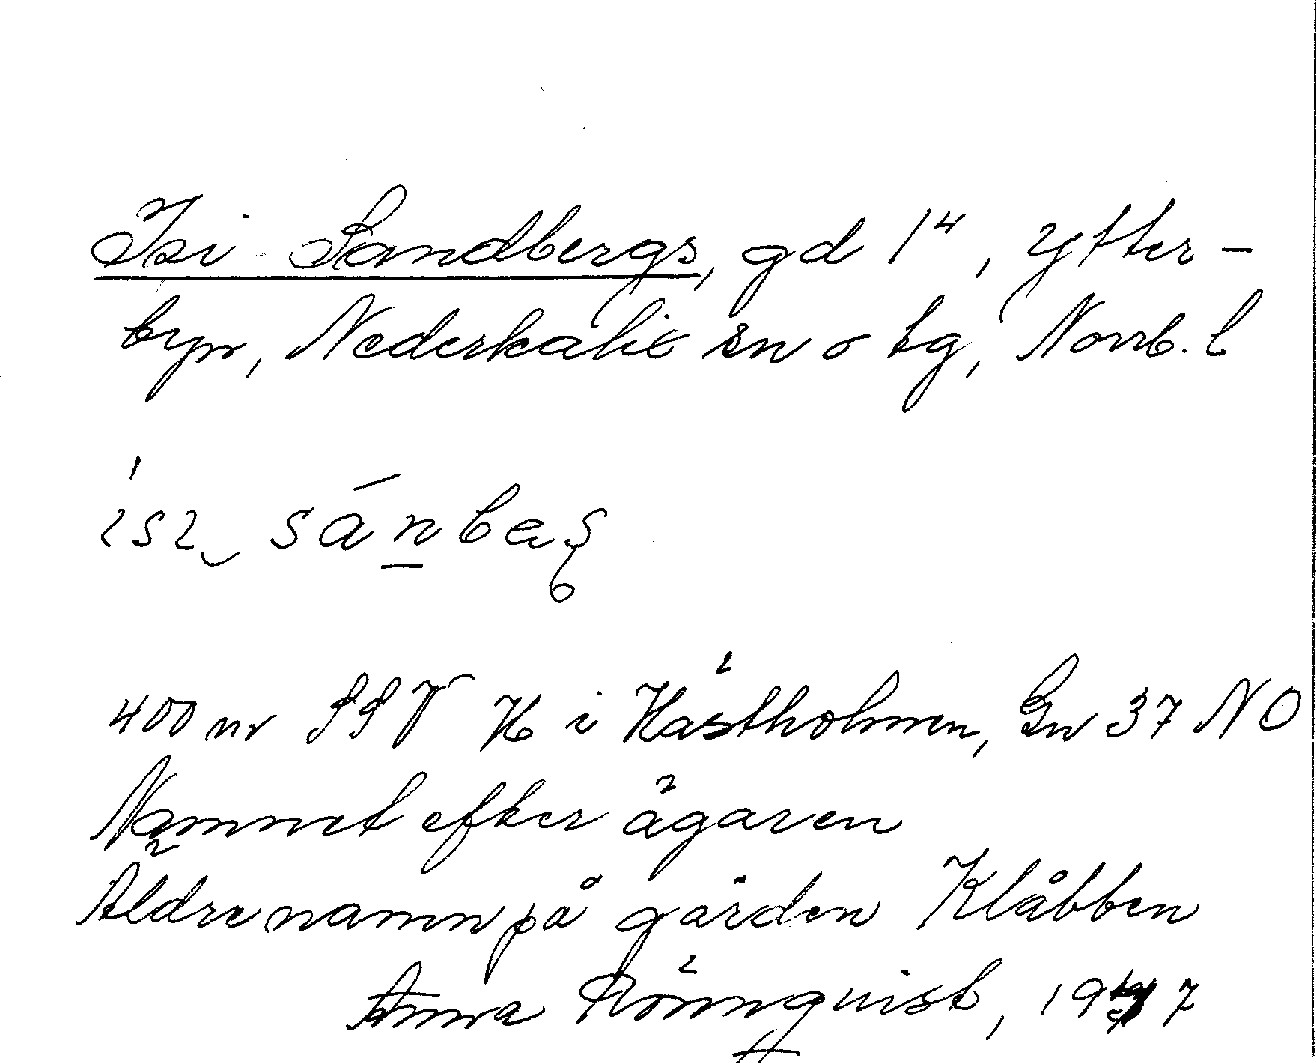 Isi Sandbergs, gd 1⁴, Ytter-
byn, Nederkalix sn o tg, Norrb. l
ɪsɪ sánbaʂ
400 m SSV K i Hästholmen, Gw 37 NO
Namnet efter ägaren
Äldre namn på gården Klåbben
Anna Rönnquist, 1947